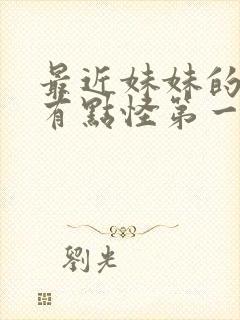 最近妹妹的
有點怪第一
劉光